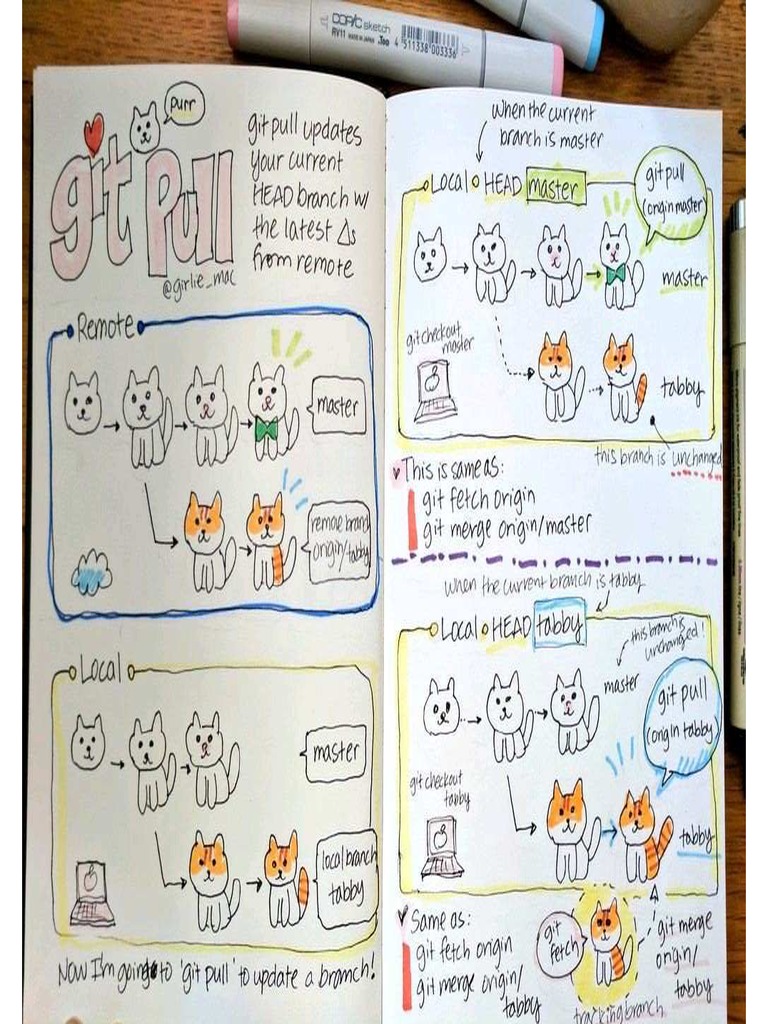 COPIC sketch
RV11 MADE IN JAPAN .Too
4 511338 003336
purr
git Pull
@girlie_mac
git pull updates
your current
HEAD branch w/
the latest Δs
from remote
Remote
master
remote branch
origin/tabby
Local
master
local branch
tabby
Now I'm going to 'git pull' to update a branch!
when the current
branch is master
Local HEAD master
git pull
(origin master)
master
git checkout
master
tabby
this branch is unchanged
This is same as:
git fetch origin
git merge origin/master
when the current branch is tabby
Local HEAD tabby
this branch is
unchanged!
master
git pull
(origin tabby)
git checkout
tabby
tabby
Same as:
git fetch origin
git merge origin/
tabby
git
fetch
git merge
origin/
tabby
tracking branch